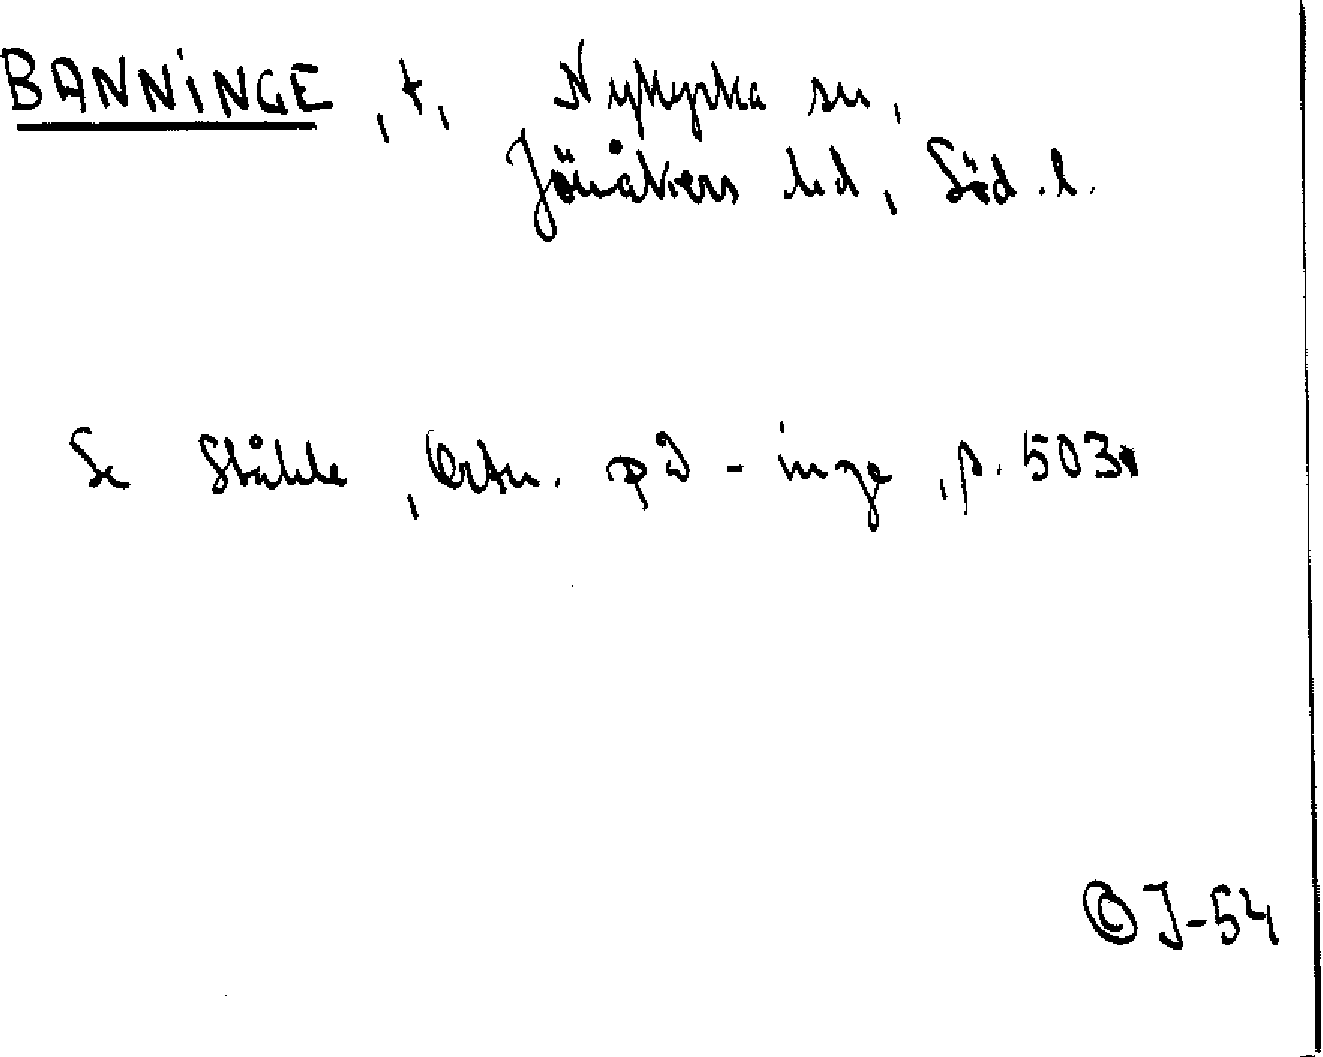 BANNINGE, t, Nykyrka sn,
Jönåkers hd, Söd. l.
Se Ståhle, Ortn. på -inge, p. 503.
© J-54